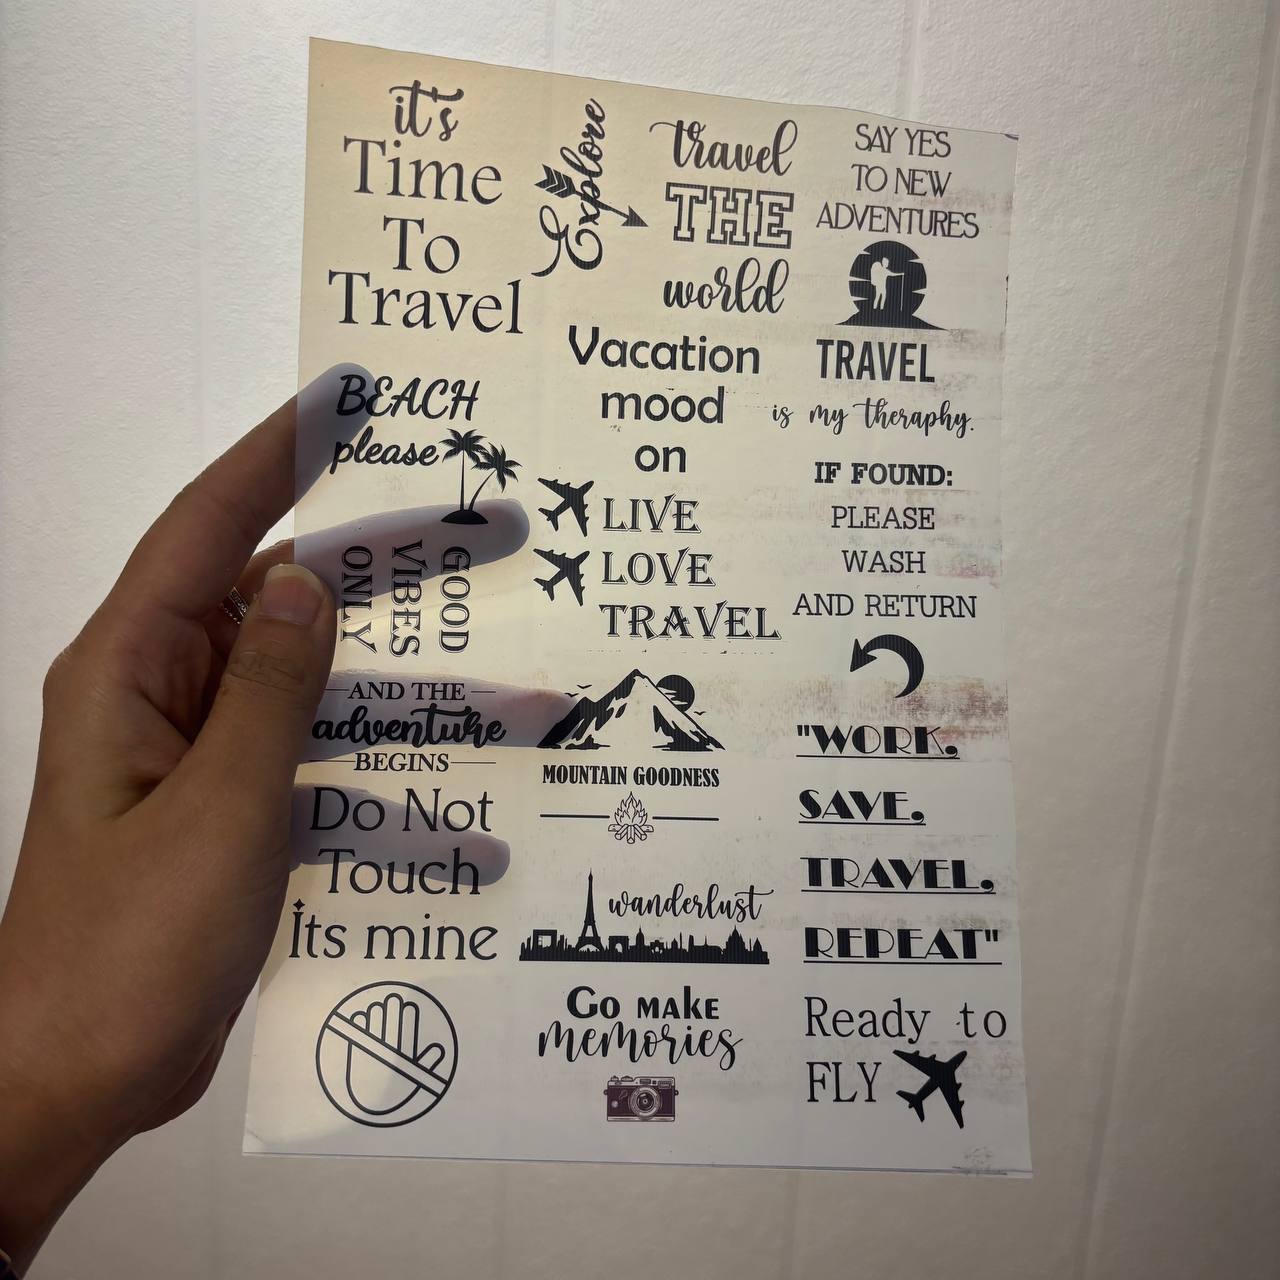 it's
Time
To
Travel
Explore
travel
THE
world
SAY YES
TO NEW
ADVENTURES
BEACH
please
Vacation
mood
on
TRAVEL
is my theraphy.
GOOD
VIBES
ONLY
LIVE
LOVE
TRAVEL
IF FOUND:
PLEASE
WASH
AND RETURN
AND THE
adventure
BEGINS
MOUNTAIN GOODNESS
"WORK.
SAVE.
TRAVEL.
REPEAT"
Do Not
Touch
Its mine
wanderlust
GO MAKE
memories
Ready to
FLY